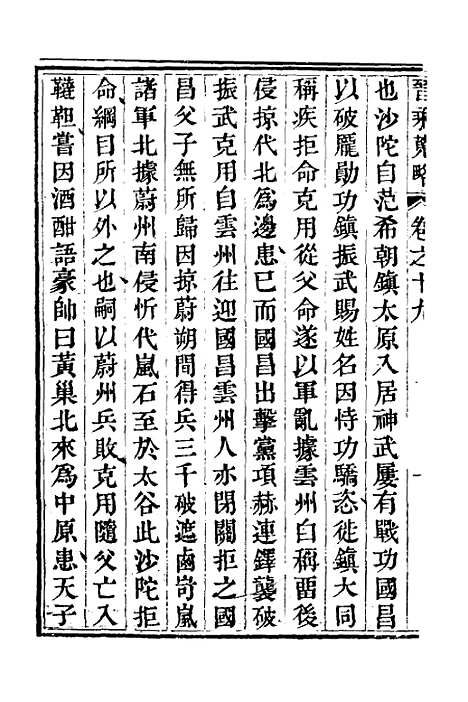 晉乘蒐略 卷之十九
也沙陀自范希朝鎮太原入居神武屢有戰功國昌
以破龐勛功鎮振武賜姓名因恃功驕恣徙鎮大同
稱疾拒命克用從父命遂以軍亂據雲州自稱畱後
侵掠代北爲邊患巳而國昌出擊黨項赫連鐸襲破
振武克用自雲州往迎國昌雲州人亦閉關拒之國
昌父子無所歸因掠蔚朔間得兵三千破遮鹵岢嵐
諸軍北據蔚州南侵忻代嵐石至於太谷此沙陀拒
命綱目所以外之也嗣以蔚州兵敗克用隨父亡入
韃靼嘗因酒酣語豪帥曰黃巢北來爲中原患天子